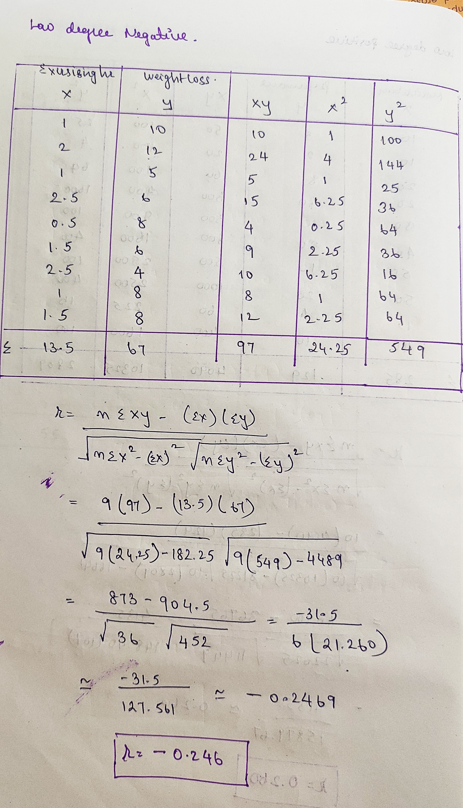 Low degree Negative.
x y xy x² y²
weightloss.
1 10 10 1 100
2 12 24 4 144
1 5 5 1 25
2.5 6 15 6.25 36
0.5 8 4 0.25 64
1.5 6 9 2.25 36
2.5 4 10 6.25 16
1 8 8 1 64
1.5 8 12 2.25 64
Σ 13.5 67 97 24.25 549
r = nΣxy - (Σx)(Σy) / √nΣx² - (Σx)² √nΣy² - (Σy)²
= 9(97) - (13.5)(67) / √9(24.25)-182.25 √9(549)-4489
= 873 - 904.5 / √36 √452 = -31.5 / 6(21.260)
≃ -31.5 / 127.561 ≃ - 0.2469
r = - 0.246